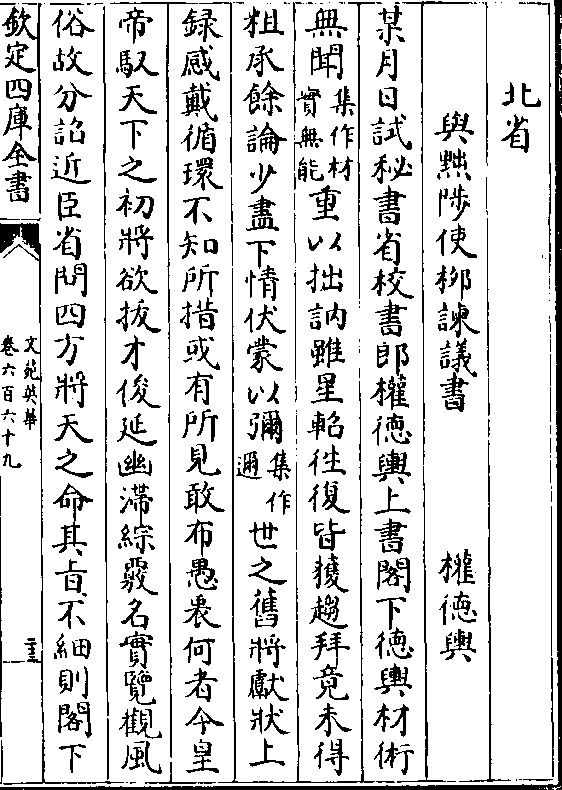 北省
與黜陟使柳諫議書 權德輿
某月日試秘書省校書郎權德輿上書閣下德輿材術
無聞集作材實無能重以拙訥雖星軺往復皆獲趨拜竟未得
粗承餘論少盡下情伏蒙以彌集作邇世之舊將獻狀上
録感戴循環不知所措或有所見敢布愚衷何者今皇
帝馭天下之初將欲拔才俊延幽滯綜覈名實覽觀風
俗故分詔近臣省問四方將天之命其㫖不細則閣下
欽定四庫全書
文苑英華
卷六百六十九